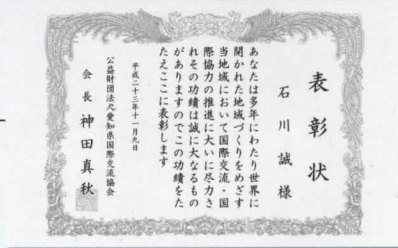 表彰状
石川誠様
あなたは多年にわたり世界に
開かれた地域づくりをめざす
当地域において国際交流・国
際協力の推進に大いに尽力さ
れその功績は誠に大なるもの
がありますのでこの功績をた
たえここに表彰します
平成二十三年十一月九日
公益財団法人愛知県国際交流協会
会長 神田真秋